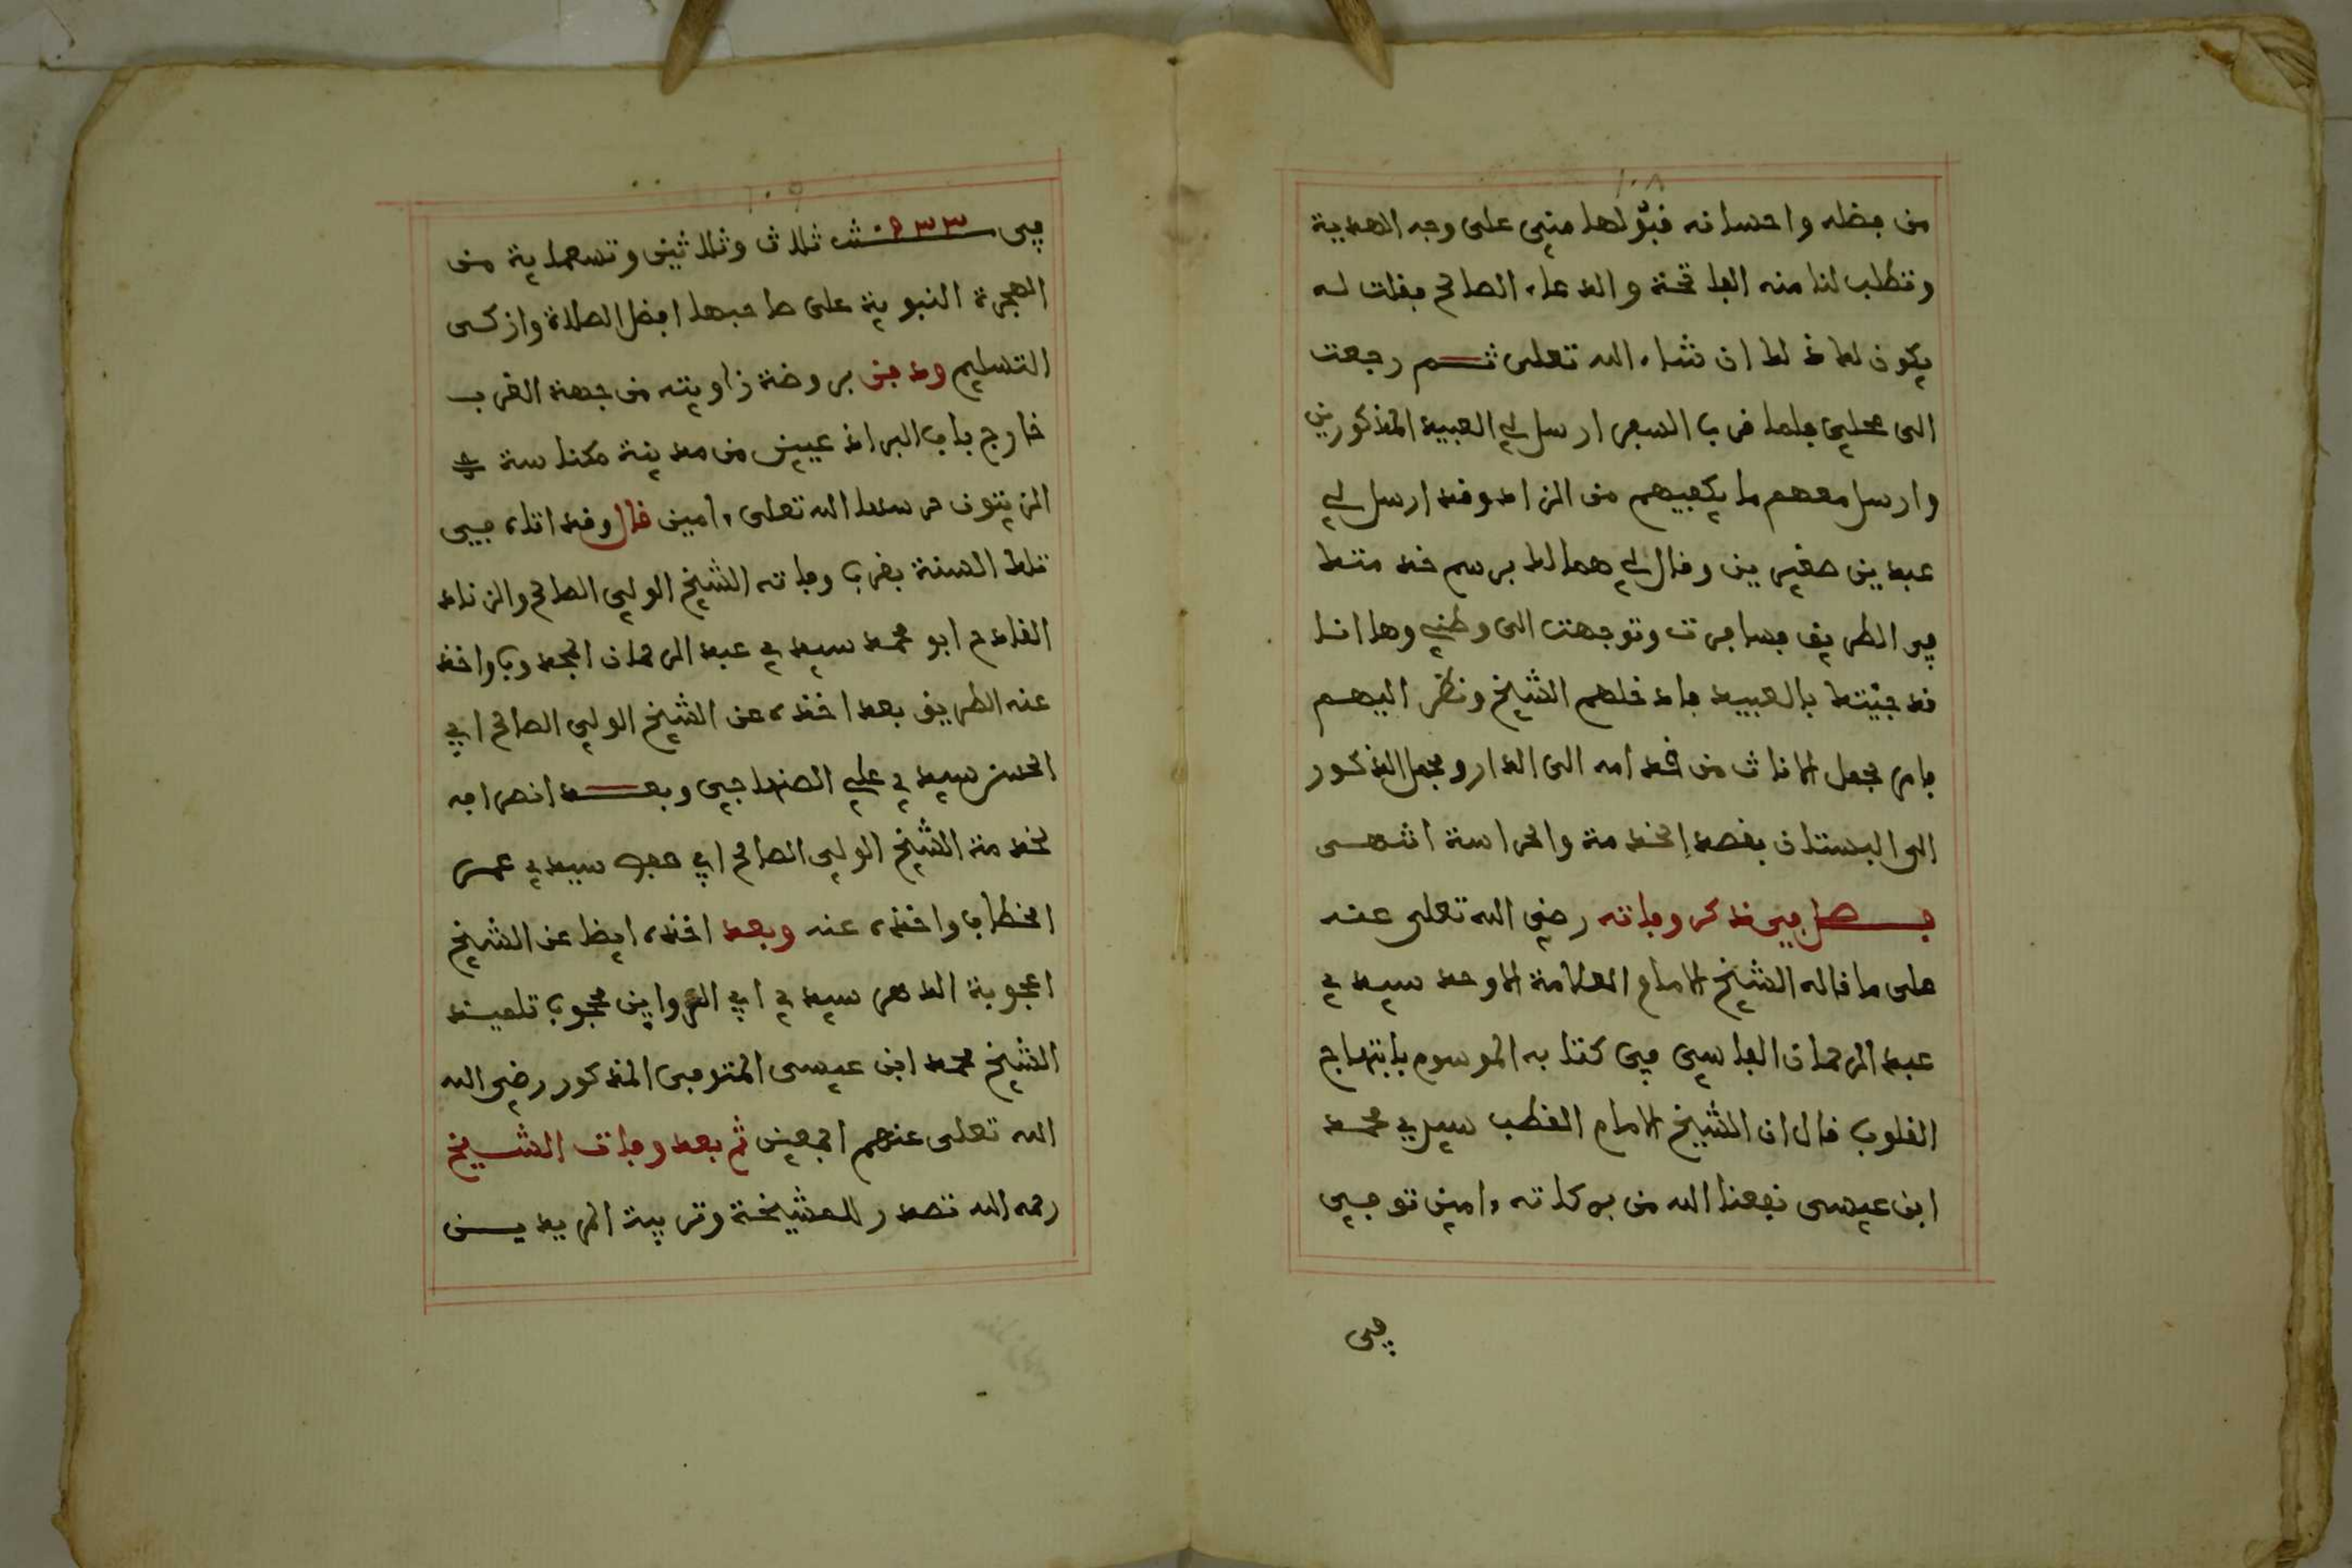 ١٠٨
من فضله واحسانه فبولها منى على وجه الهدية
وتطلب لنا منه الفاتحة والدعاء الصالح فقلت له
يكون لك ذلك ان شاء الله تعلى ثم رجعت
الى محلي فلما قرب السفر ارسل لي العبيد المذكورين
وارسل معهم ما يكفيهم من الزاد وقد ارسل لي
عبدين صغيرين وقال لي هما لك برسم خدمتك
في الطريق فسافرت وتوجهت الى وطني وها انا
قد جيتك بالعبيد فادخلهم الشيخ ونظر اليهم
فامر بجعل الاناث من خدامه الى الدار وبجعل الذكور
الى البستان بقصد الخدمة والحراسة انتهى
فصل في ذكر وفاته رضي الله تعلى عنه
على ما قاله الشيخ الامام العلامة الاوحد سيدي
عبد الرحمان الفاسي في كتابه الموسوم بابتهاج
القلوب قال ان الشيخ الامام القطب سيدي محمد
ابن عيسى نفعنا الله من بركاته ءامين توفي
في
١٠٩
في سنة ٩٣٣ ثلاث وثلاثين وتسعماية من
الهجرة النبوية على صاحبها افضل الصلاة وازكى
التسليم ودفن بروضة زاويته من جهة الغرب
خارج باب البراذعيين من مدينة مكناسة
الزيتون حرسها الله تعلى ءامين قال وقد اتاه في
تلك السنة بقرب وفاته الشيخ الولي الصالح والزناد
القادح ابو محمد سيدي عبد الرحمان المجذوب واخذ
عنه الطريق بعد اخذه عن الشيخ الولي الصالح ابي
الحسن سيدي علي الصنهاجي وبعد انصرافه
لخدمة الشيخ الولي الصالح ابي حفص سيدي عمر
الخطاب واخذه عنه وبعد اخذه ايضا عن الشيخ
اعجوبة الدهر سيدي ابي الرواين محجوب تلميذ
الشيخ محمد ابن عيسى المتوفى المذكور رضي الله
الله تعلى عنهم اجمعين ثم بعد وفات الشيخ
رحمه الله تصدر للمشيخة وتربية المريدين